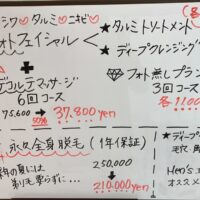 シワ♡タルミ♡ニキビ
フォトフェイシャル
★タルミトリートメント
★ディープクレンジング
デコルテマッサージ
6回コース
75,600 → 50% 37,800yen
フォト無しプラン
3回コース
各11,00
永久全身脱毛（1年保証）
年の夏には
剃り要らずに…
250,000
→ 210,000yen
★ディープ
毛穴
Men's
オススメ